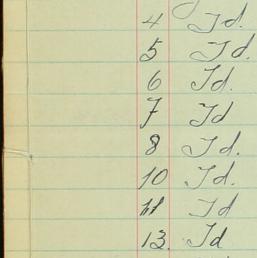 4 Id.
5 Id.
6 Id.
7 Id
8 Id.
10 Id.
11 Id
13. Id